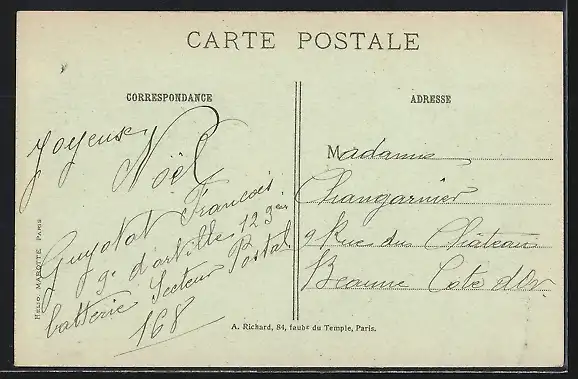 CARTE POSTALE
CORRESPONDANCE
Joyeux
Noël
Guyotat François
9e d'artille 123em
batterie Secteur Postal
168
HELIO. MAROTTE PARIS
ADRESSE
Madame
Changarnier
9 Rue du Château
Beaune Cote d'Or
A. Richard, 84, faubg du Temple, Paris.